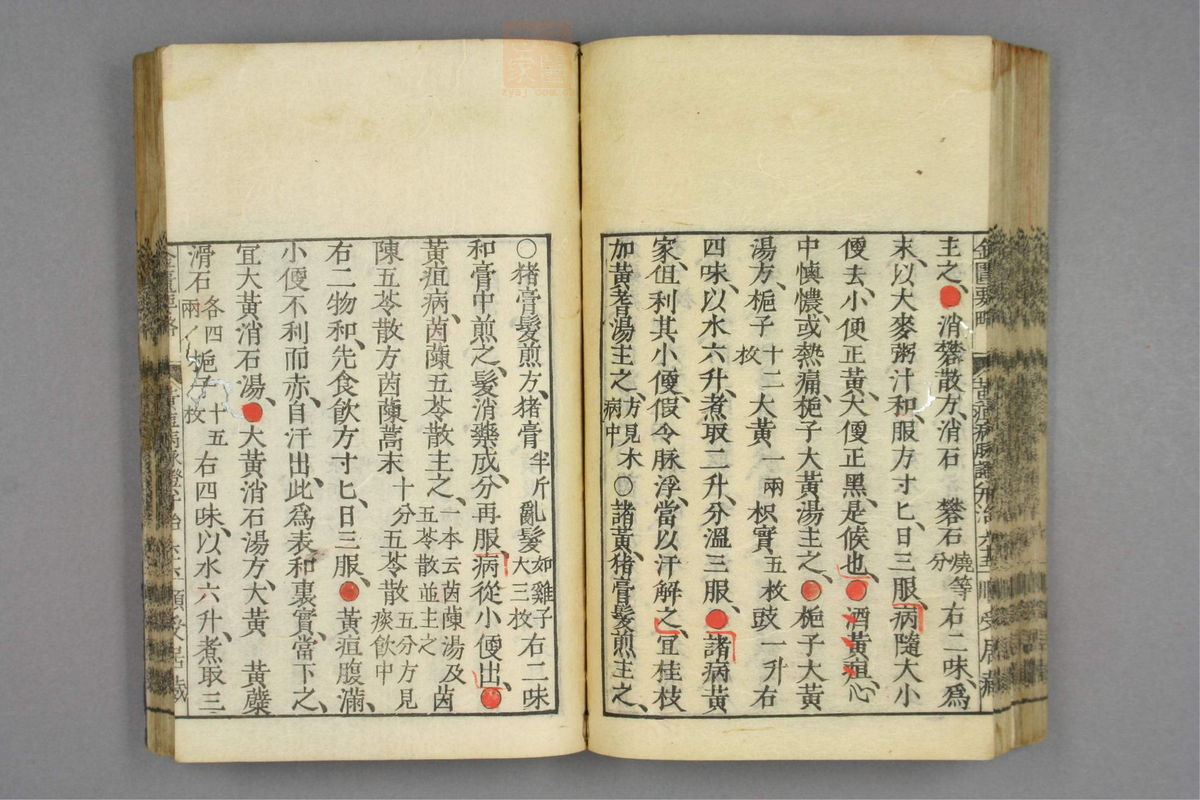 主之、消礬散方、消石 礬石燒等分右二味、爲
末、以大麥粥汁和、服方寸匕、日三服、病隨大小
便去、小便正黃、大便正黑、是候也、酒黃疸、心
中懊憹、或熱痛、梔子大黃湯主之、梔子大黃
湯方、梔子十二枚大黃一兩枳實五枚豉一升右
四味、以水六升、煮取二升、分溫三服、諸病黃
家、但利其小便、假令脉浮、當以汗解之、宜桂枝
加黃耆湯主之、方見水病中○諸黃、猪膏髮煎主之、
○猪膏髮煎方、猪膏半斤亂髮如雞子大三枚右二味
和膏中煎之、髮消藥成、分再服、病從小便出、
黃疸病、茵蔯五苓散主之、一本云茵蔯湯及茵五苓散並主之
陳五苓散方茵陳蒿末十分五苓散五分方見痰飲中
右二物和、先食飲方寸匕、日三服、黃疸腹滿、
小便不利而赤、自汗出、此爲表和裏實、當下之、
宜大黃消石湯、大黃消石湯方、大黃 黃蘗
滑石各四兩梔子十五枚右四味、以水六升、煮取三